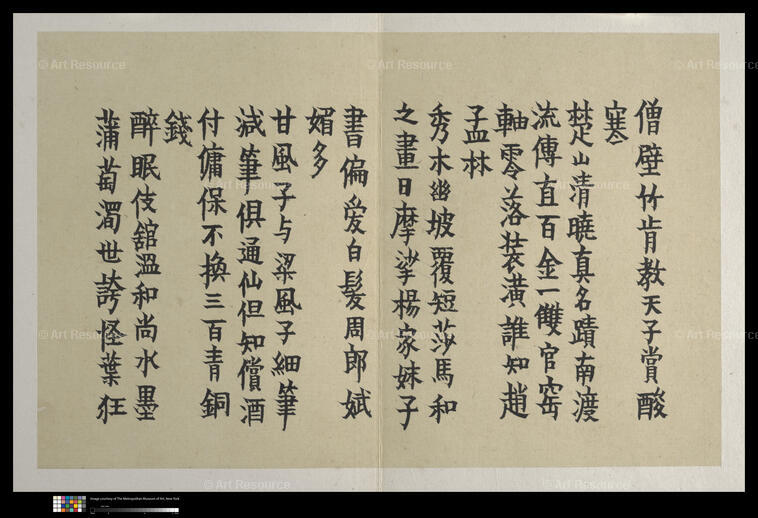 僧壁竹肯教天子賞酸
寒
楚山清曉真名蹟南渡
流傳直百金一雙官窑
軸零落装潢誰知趙
孟林
秀木幽坡覆短莎馬和
之畫日摩挲楊家妹子
書偏愛白髮周郎娬
媚多
甘風子与梁風子細筆
減筆俱通仙但知償酒
付傭保不換三百青銅
錢
醉眠伎舘溫和尚水墨
蒲萄濁世誇怪葉狂
© Art Resource
© Art Resource
© Art Resource
© Art Resource
© Art Resource
© Art Resource
© Art Resource
© Art Resource
Image courtesy of The Metropolitan Museum of Art, New York